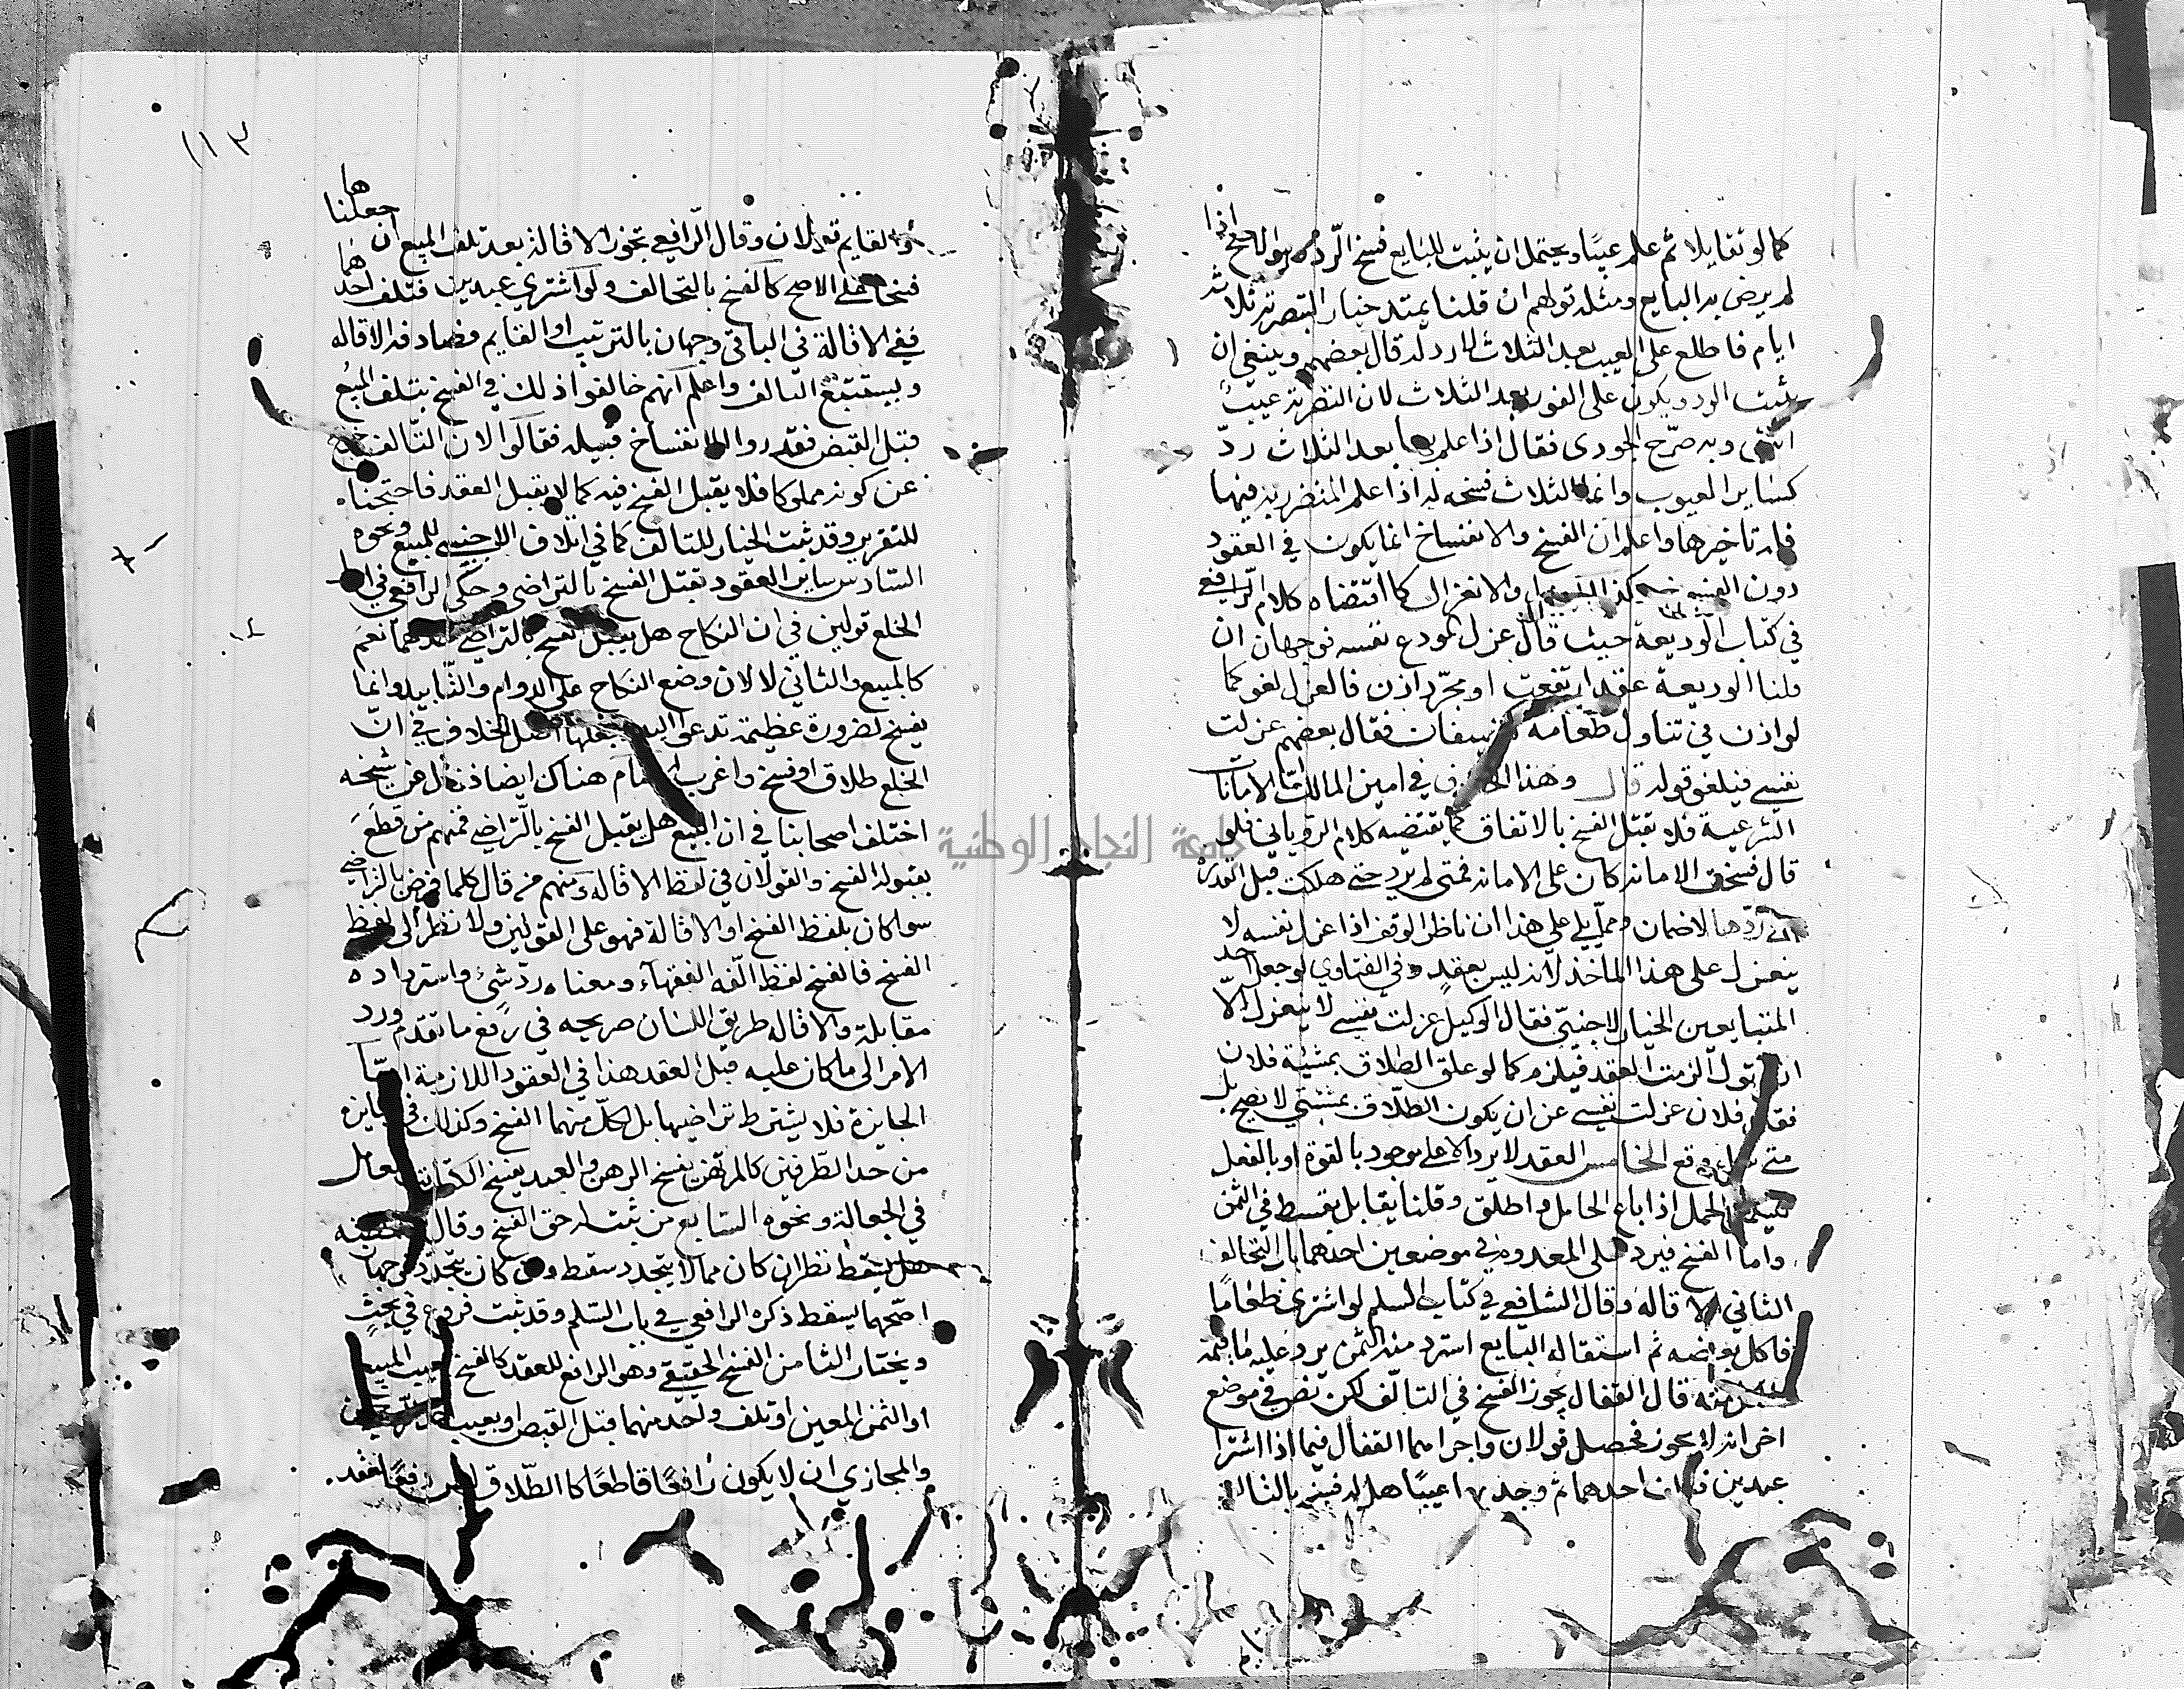 كما لو تقايلا ثم علم عيبا ويحتمل ان يثبت للبايع فسخ الرد اذا
لم يرض به البايع ومثله قولهم ان قلنا يمتد خيار التصرية ثلاثة
ايام فاطلع على العيب بعد الثلاث لا رد له قال بعضهم وينبغي ان
يثبت الرد ويكون على الفور بعد الثلاث لان التصرية عيب
انتهى وبه صرح الجوري فقال اذا علم بها بعد الثلاث ردّ
كساير العيوب وانما الثلاث فسحة له اذا علم التصرية فيها
فله تاخيرها واعلم ان الفسخ والانفساخ انما يكون في العقود
دون والانعزال كما اقتضاه كلام الرافعي
في كتاب الوديعة حيث قال عزل المودع نفسه فوجهان ان
قلنا الوديعة عقد ارتفعت او مجرد اذن فالعزل لغو كما
لو اذن في تناول طعامه للضيفان فقال بعضهم عزلت
نفسي فيلغو قوله قال وهذا الخلاف في امين المالك اما الامانات
الشرعية فلا يقبل الفسخ بالاتفاق كما يقتضيه كلام الروياني فلو
قال فسخت الامانة كان على الامانة فمتى لم يرد حتى هلكت قبل القدرة
على ردها لا ضمان ومما يبنى على هذا ان ناظر الوقف اذا عزل نفسه لا
ينعزل على هذا الماخذ لانه ليس بعقد وفي الفتاوي لو جعل احد
المتبايعين الخيار لاجنبي فقال الوكيل عزلت نفسي لا ينعزل الا
ان يقول الزمت العقد فيلزم كما لو علق الطلاق بمشيئة فلان
فقال فلان عزلت نفسي عن ان يكون الطلاق بمشيئتي لا يصح بل
متى شاء وقع الخامس العقد لا يرد الا على موجود بالقوة او بالفعل
الحمل اذا باع الحامل واطلق وقلنا يقابل بقسط في الثمن
واما الفسخ فيرد على المعدوم في موضعين احدهما باب التحالف
الثاني الاقالة وقال الشافعي في كتاب السلم لو اشترى طعاما
فاكل بعضه ثم استقاله البايع استرد منه الثمن يرد عليه ما قيمته
قال القفال يجوز الفسخ في التالف لكن نص في موضع
اخر انه لا يجوز فحصل قولان واجراهما القفال فيما اذا اشترا
عبدين فمات احدهما ثم وجد بها عيبا هل له فسخه بالتالف
١١٣
او القايم قولان وقال الرافعي تجوز الاقالة بعد تلف المبيع ان جعلناها
فسخا على الاصح كالفسخ بالتحالف ولو اشترى عبدين فتلف احدهما
ففي الاقالة في الباقي وجهان بالترتيب او القايم فصادفه الاقالة
ويستتبع التالف واعلم انهم خالفوا ذلك في الفسخ بتلف المبيع
قبل القبض فقدروا الانفساخ قبيله فقالوا لان التالف خرج
عن كونه مملوكا فلا يقبل الفسخ فيه كما لا يقبل العقد فاحتجنا
للتقرير وقد ثبت الخيار للتالف كما في اتلاف الاجنبي للمبيع ونحوه
السادس ساير العقود تقبل الفسخ بالتراضي وحكى الرافعي في
الخلع قولين في ان النكاح هل يقبل الفسخ بالتراضي احدهما نعم
كالمبيع والثاني لا لان وضع النكاح على الدوام والتابيد وانما
يفسخ لضرورة عظيمة تدعو اليه اصل الخلاف في ان
الخلع طلاق او فسخ واغرب هناك ايضا فنقل عن شيخه
اختلف اصحابنا في ان البيع هل يقبل الفسخ بالتراضي فمنهم من قطع
بقبوله الفسخ والقولان في لفظ الاقالة ومنهم من قال كلما فرض بالتراضي
سوا كان بلفظ الفسخ او الاقالة فهو على القولين ولا نظر الى لفظ
الفسخ فالفسخ لفظ الفه الفقهاء ومعناه رد شيء واسترداده
مقابلة والاقالة طريق اللسان صريحه في رفع ما تقدم ورد
الامر الى ما كان عليه قبل العقد هذا في العقود اللازمة اما
الجايزة فلا يشترط تراضيهما بل لكل منهما الفسخ وكذلك في الجايزة
من احد الطرفين كالمرتهن يفسخ الرهن والعبد يفسخ الكتابة والعامل
في الجعالة ونحوه السابع من ثبت له حق الفسخ وقال
هل يسقط نظر ان كان مما لا يتجدد سقط وان كان يتجدد فوجهان
اصحهما يسقط ذكره الرافعي في باب السلم وقد ثبت فروع في بحث
ويختار الثامن الفسخ الحقيقي وهو الرافع للعقد كالفسخ بعيب المبيع
او الثمن المعين او تلف واحد منهما قبل القبض او بعيب
والمجازي ان لا يكون رافعا قاطعا كالطلاق ليس رفعا للعقد
جامعة النجاح الوطنية